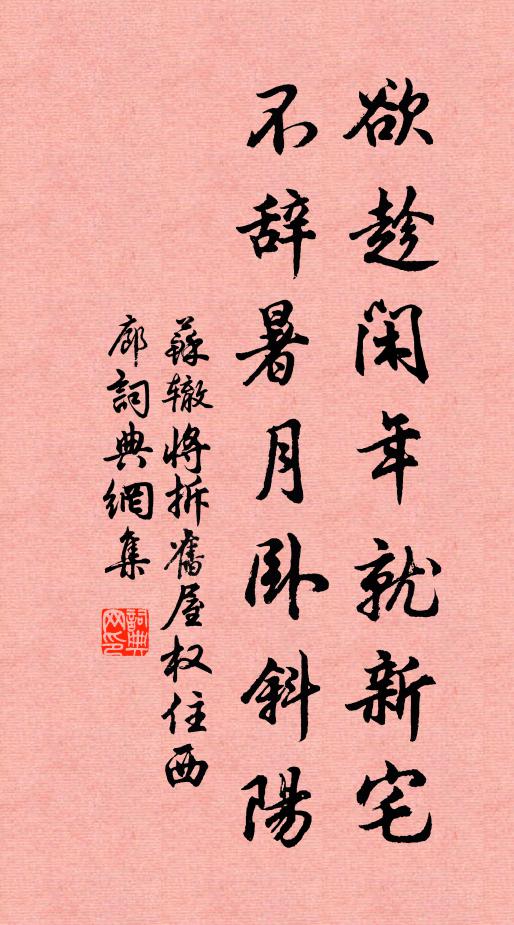 欲趁闲年就新宅
不辞暑月卧斜陽
蘇辙将拆舊屋权住西
廊詞典網集
詞典
网印